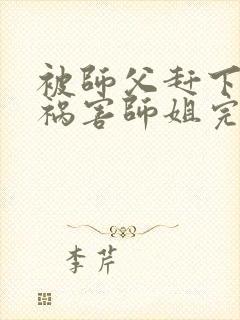 被師父赶下
祸害師姐完
李芹